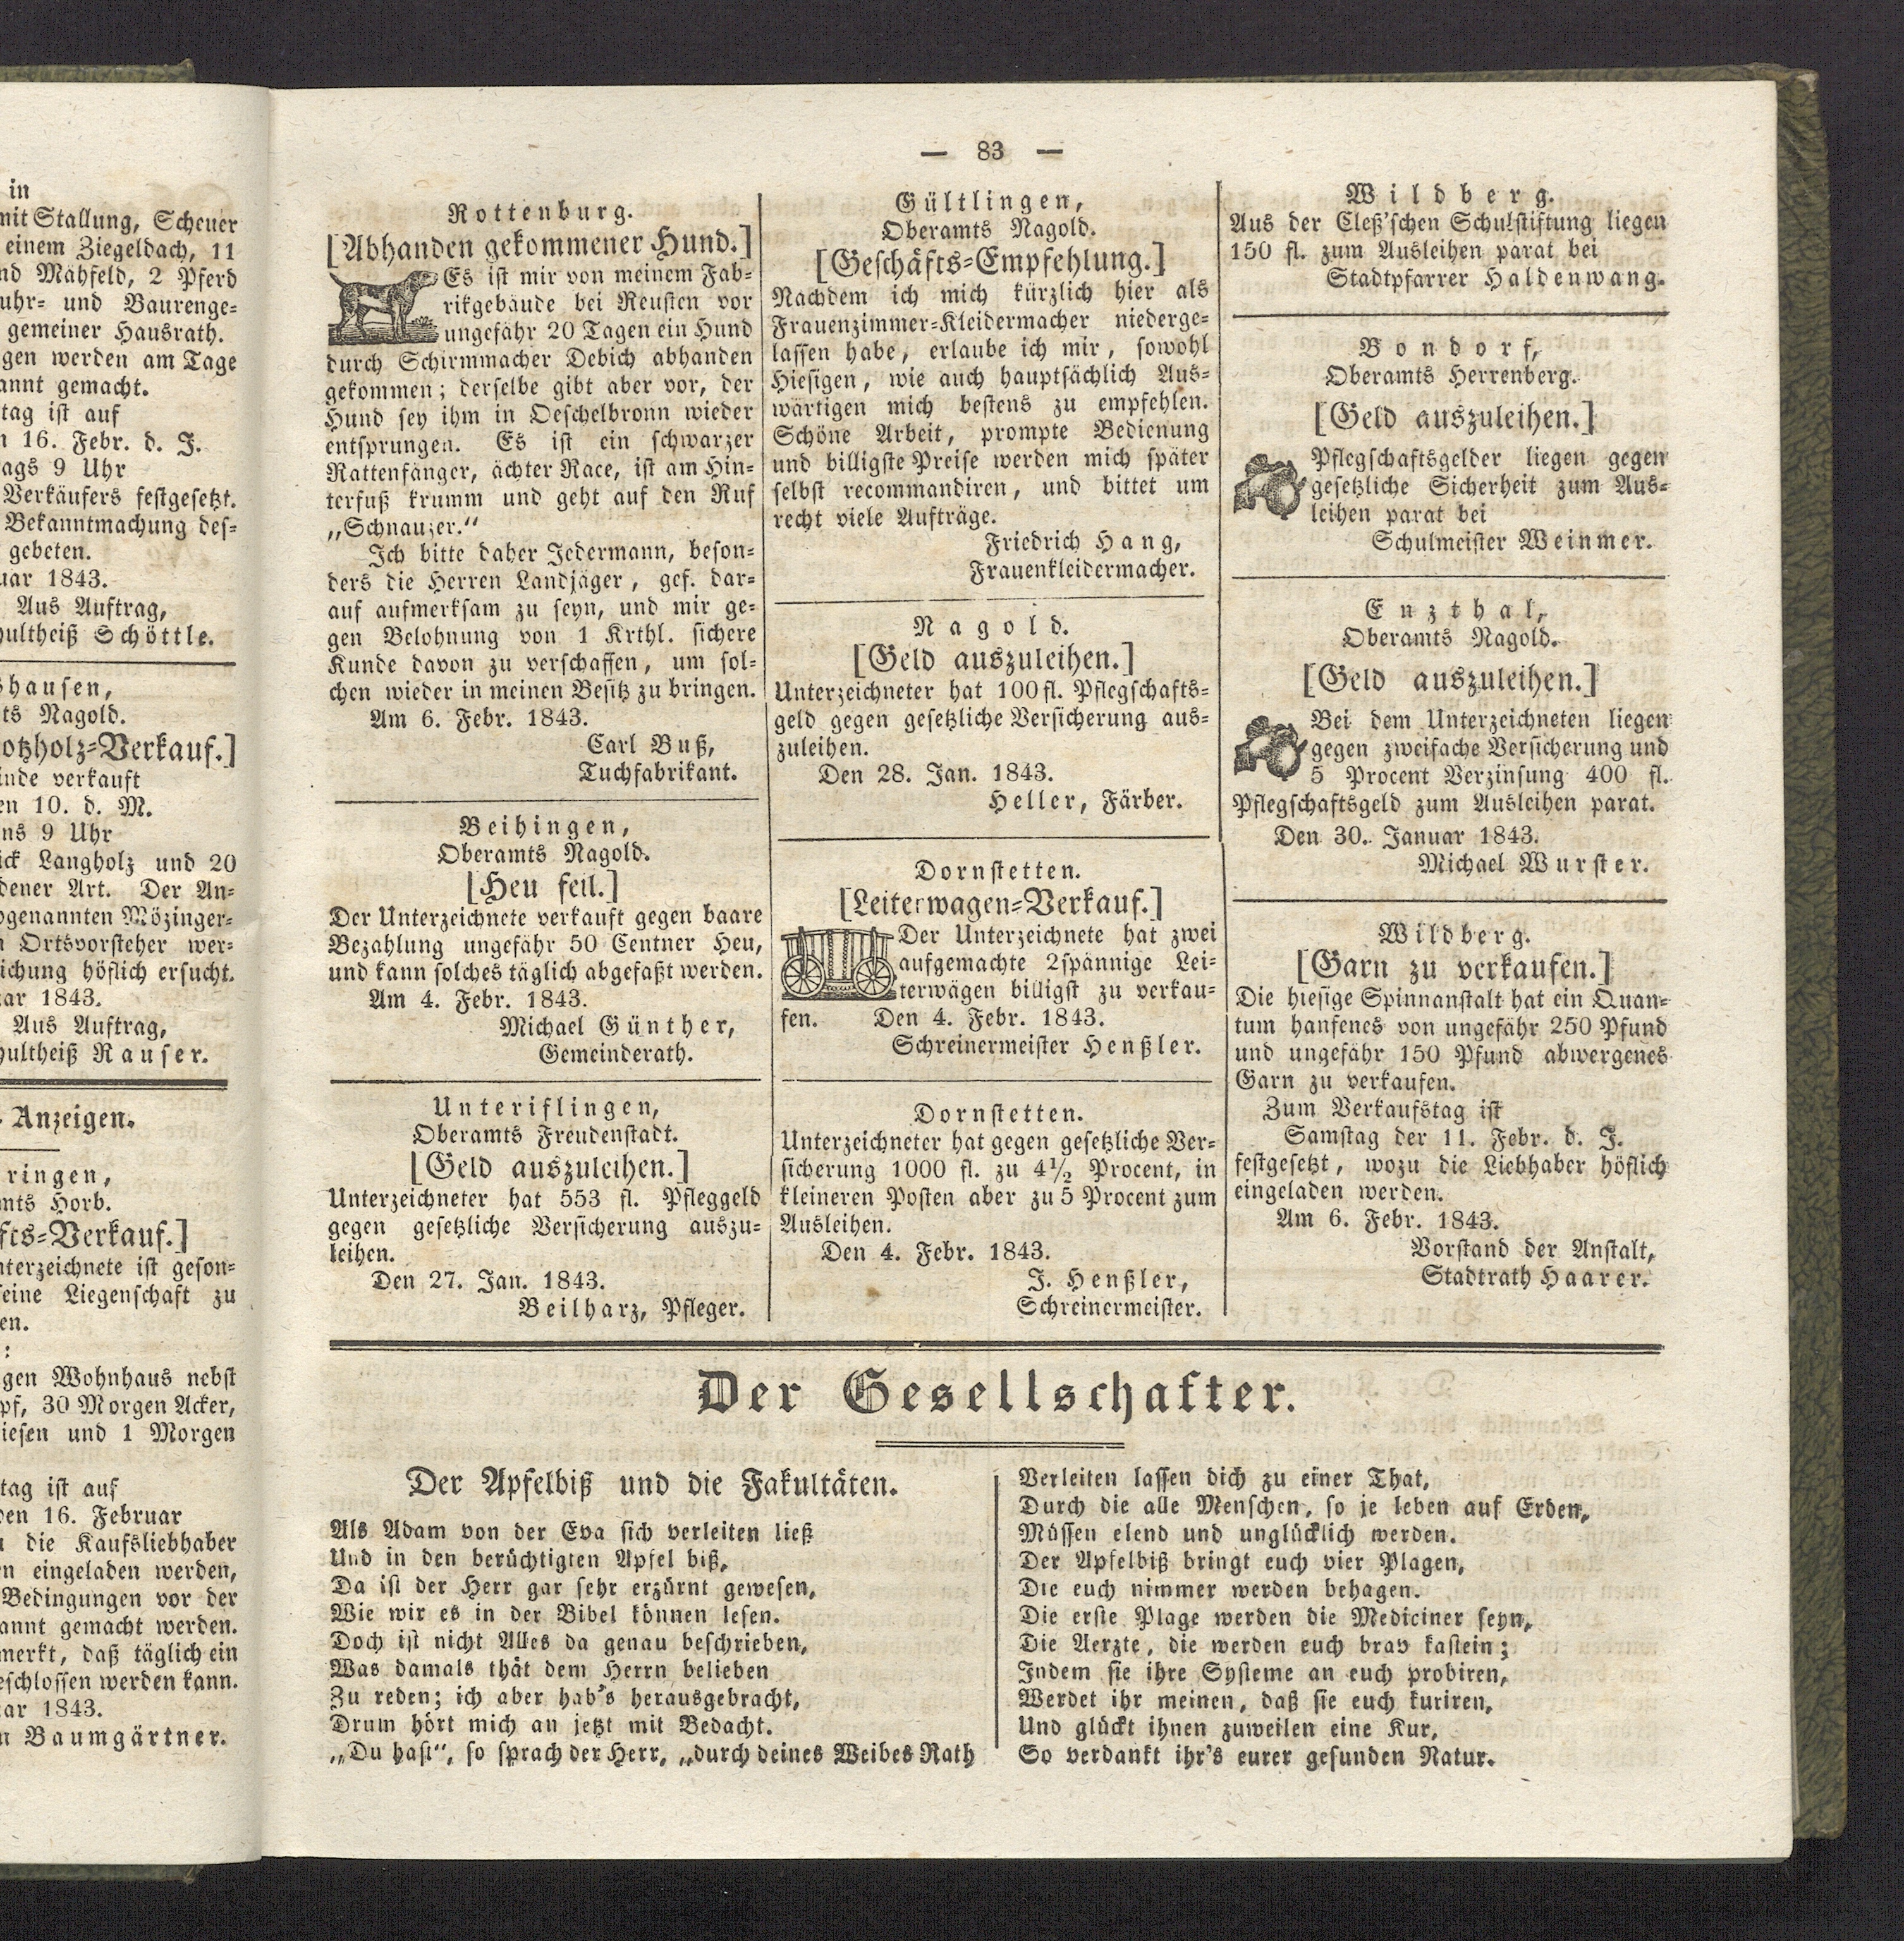 in
mit Stallung, Scheuer
einem Ziegeldach, 11
nd Mähfeld, 2 Pferd
uhr- und Baurenge-
gemeiner Hausrath.
gen werden am Tage
annt gemacht.
tag ist auf
n 16. Febr. d. J.
ags 9 Uhr
Verkäufers festgesetzt.
Bekanntmachung des-
gebeten.
uar 1843.
Aus Auftrag,
hultheiß Schöttle.
shausen,
ts Nagold.
otzholz-Verkauf.]
inde verkauft
en 10. d. M.
ns 9 Uhr
ick Langholz und 20
dener Art. Der An-
ogenannten Mözinger-
n Ortsvorsteher wer-
ichung höflich ersucht.
ar 1843.
Aus Auftrag,
hultheiß Rauser.
Anzeigen.
ringen,
mts Horb.
fts-Verkauf.]
nterzeichnete ist geson-
seine Liegenschaft zu
en.
:
gen Wohnhaus nebst
pf, 30 Morgen Acker,
iesen und 1 Morgen
tag ist auf
den 16. Februar
die Kaufsliebhaber
n eingeladen werden,
Bedingungen vor der
annt gemacht werden.
merkt, daß täglich ein
eschlossen werden kann.
ar 1843.
n Baumgärtner.
— 83 —
Rottenburg.
[Abhanden gekommener Hund.]
Es ist mir von meinem Fab-
rikgebäude bei Reusten vor
ungefähr 20 Tagen ein Hund
durch Schirmmacher Debich abhanden
gekommen; derselbe gibt aber vor, der
Hund sey ihm in Oeschelbronn wieder
entsprungen. Es ist ein schwarzer
Rattenfänger, ächter Race, ist am Hin-
terfuß krumm und geht auf den Ruf
„Schnauzer.“
Ich bitte daher Jedermann, beson-
ders die Herren Landjäger, gef. dar-
auf aufmerksam zu seyn, und mir ge-
gen Belohnung von 1 Krthl. sichere
Kunde davon zu verschaffen, um sol-
chen wieder in meinen Besitz zu bringen.
Am 6. Febr. 1843.
Carl Buß,
Tuchfabrikant.
Beihingen,
Oberamts Nagold.
[Heu feil.]
Der Unterzeichnete verkauft gegen baare
Bezahlung ungefähr 50 Centner Heu,
und kann solches täglich abgefaßt werden.
Am 4. Febr. 1843.
Michael Günther,
Gemeinderath.
Unteriflingen,
Oberamts Freudenstadt.
[Geld auszuleihen.]
Unterzeichneter hat 553 fl. Pfleggeld
gegen gesetzliche Versicherung auszu-
leihen.
Den 27. Jan. 1843.
Beilharz, Pfleger.
Gültlingen,
Oberamts Nagold.
[Geschäfts-Empfehlung.]
Nachdem ich mich kürzlich hier als
Frauenzimmer-Kleidermacher niederge-
lassen habe, erlaube ich mir, sowohl
Hiesigen, wie auch hauptsächlich Aus-
wärtigen mich bestens zu empfehlen.
Schöne Arbeit, prompte Bedienung
und billigste Preise werden mich später
selbst recommandiren, und bittet um
recht viele Aufträge.
Friedrich Hang,
Frauenkleidermacher.
Nagold.
[Geld auszuleihen.]
Unterzeichneter hat 100 fl. Pflegschafts-
geld gegen gesetzliche Versicherung aus-
zuleihen.
Den 28. Jan. 1843.
Heller, Färber.
Dornstetten.
[Leiterwagen-Verkauf.]
Der Unterzeichnete hat zwei
aufgemachte 2spännige Lei-
terwägen billigst zu verkau-
fen. Den 4. Febr. 1843.
Schreinermeister Henßler.
Dornstetten.
Unterzeichneter hat gegen gesetzliche Ver-
sicherung 1000 fl. zu 4½ Procent, in
kleineren Posten aber zu 5 Procent zum
Ausleihen.
Den 4. Febr. 1843.
J. Henßler,
Schreinermeister.
Wildberg.
Aus der Cleß'schen Schulstiftung liegen
150 fl. zum Ausleihen parat bei
Stadtpfarrer Haldenwang.
Bondorf,
Oberamts Herrenberg.
[Geld auszuleihen.]
Pflegschaftsgelder liegen gegen
gesetzliche Sicherheit zum Aus-
leihen parat bei
Schulmeister Weinmer.
Enzthal,
Oberamts Nagold.
[Geld auszuleihen.]
Bei dem Unterzeichneten liegen
gegen zweifache Versicherung und
5 Procent Verzinsung 400 fl.
Pflegschaftsgeld zum Ausleihen parat.
Den 30. Januar 1843.
Michael Wurster.
Wildberg.
[Garn zu verkaufen.]
Die hiesige Spinnanstalt hat ein Quan-
tum hanfenes von ungefähr 250 Pfund
und ungefähr 150 Pfund abwergenes
Garn zu verkaufen.
Zum Verkaufstag ist
Samstag der 11. Febr. d. J.
festgesetzt, wozu die Liebhaber höflich
eingeladen werden.
Am 6. Febr. 1843.
Vorstand der Anstalt,
Stadtrath Haarer.
Der Gesellschafter.
Der Apfelbiß und die Fakultäten.
Als Adam von der Eva sich verleiten ließ
Und in den berüchtigten Apfel biß,
Da ist der Herr gar sehr erzürnt gewesen,
Wie wir es in der Bibel können lesen.
Doch ist nicht Alles da genau beschrieben,
Was damals thät dem Herrn belieben
Zu reden; ich aber hab's herausgebracht,
Drum hört mich an jetzt mit Bedacht.
„Du hast“, so sprach der Herr, „durch deines Weibes Rath
Verleiten lassen dich zu einer That,
Durch die alle Menschen, so je leben auf Erden,
Müssen elend und unglücklich werden.
Der Apfelbiß bringt euch vier Plagen,
Die euch nimmer werden behagen.
Die erste Plage werden die Mediciner seyn,
Die Aerzte, die werden euch brav kastein;
Indem sie ihre Systeme an euch probiren,
Werdet ihr meinen, daß sie euch kuriren,
Und glückt ihnen zuweilen eine Kur,
So verdankt ihr's eurer gesunden Natur.